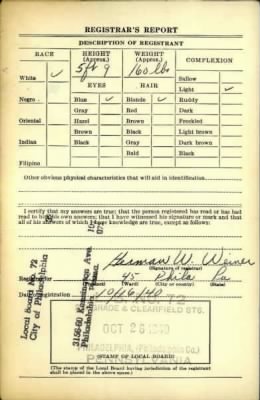 REGISTRAR'S REPORT
DESCRIPTION OF REGISTRANT
RACE HEIGHT (Approx.) WEIGHT (Approx.) COMPLEXION
White ✓ 5ft 9 160 lbs Sallow
EYES HAIR Light ✓
Negro Blue ✓ Blonde ✓ Ruddy
Gray Red Dark
Oriental Hazel Brown Freckled
Brown Black Light brown
Indian Black Gray Dark brown
Bald Black
Filipino
Other obvious physical characteristics that will aid in identification
I certify that my answers are true; that the person registered has read or has had
read to him his own answers; that I have witnessed his signature or mark and that
all of his answers of which I have knowledge are true, except as follows:
Herman W. Weiner
(Signature of registrar)
Registrar for 45 Phila Pa
(Ward) (City or county) (State)
Date of registration 10/16/40
Local Board No. 72
City of Philadelphia
3156-60 Kensington Ave.
Philadelphia
NO. 72
& CLEARFIELD STS.
OCT 26 1940
PHILADELPHIA, (Philadelphia Co.)
PENNSYLVANIA
(STAMP OF LOCAL BOARD)
(The stamp of the Local Board having jurisdiction of the registrant
shall be placed in the above space.)